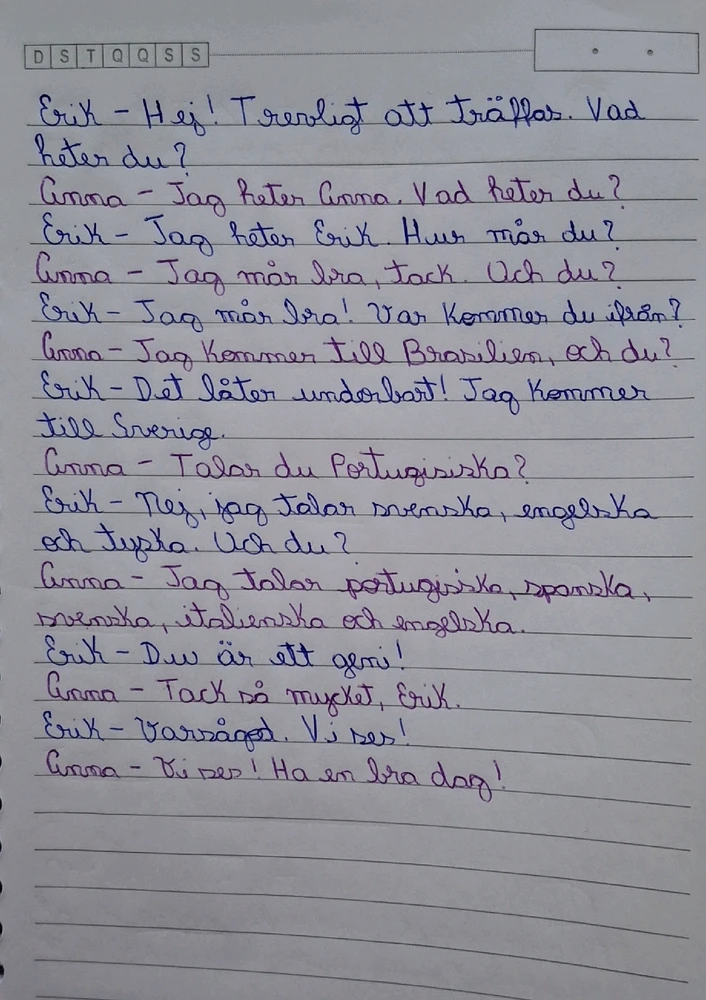 D S T Q Q S S
Erik - Hej! Trevligt att träffas. Vad
heter du?
Anna - Jag heter Anna. Vad heter du?
Erik - Jag heter Erik. Hur mår du?
Anna - Jag mår bra, tack. Och du?
Erik - Jag mår bra! Var kommer du ifrån?
Anna - Jag kommer till Brasilien, och du?
Erik - Det låter underbart! Jag kommer
till Sverige.
Anna - Talar du Portugisiska?
Erik - Nej, jag talar svenska, engelska
och tyska. Och du?
Anna - Jag talar portugisiska, spanska,
svenska, italienska och engelska.
Erik - Du är ett geni!
Anna - Tack så mycket, Erik.
Erik - Varsågod. Vi ses!
Anna - Vi ses! Ha en bra dag!